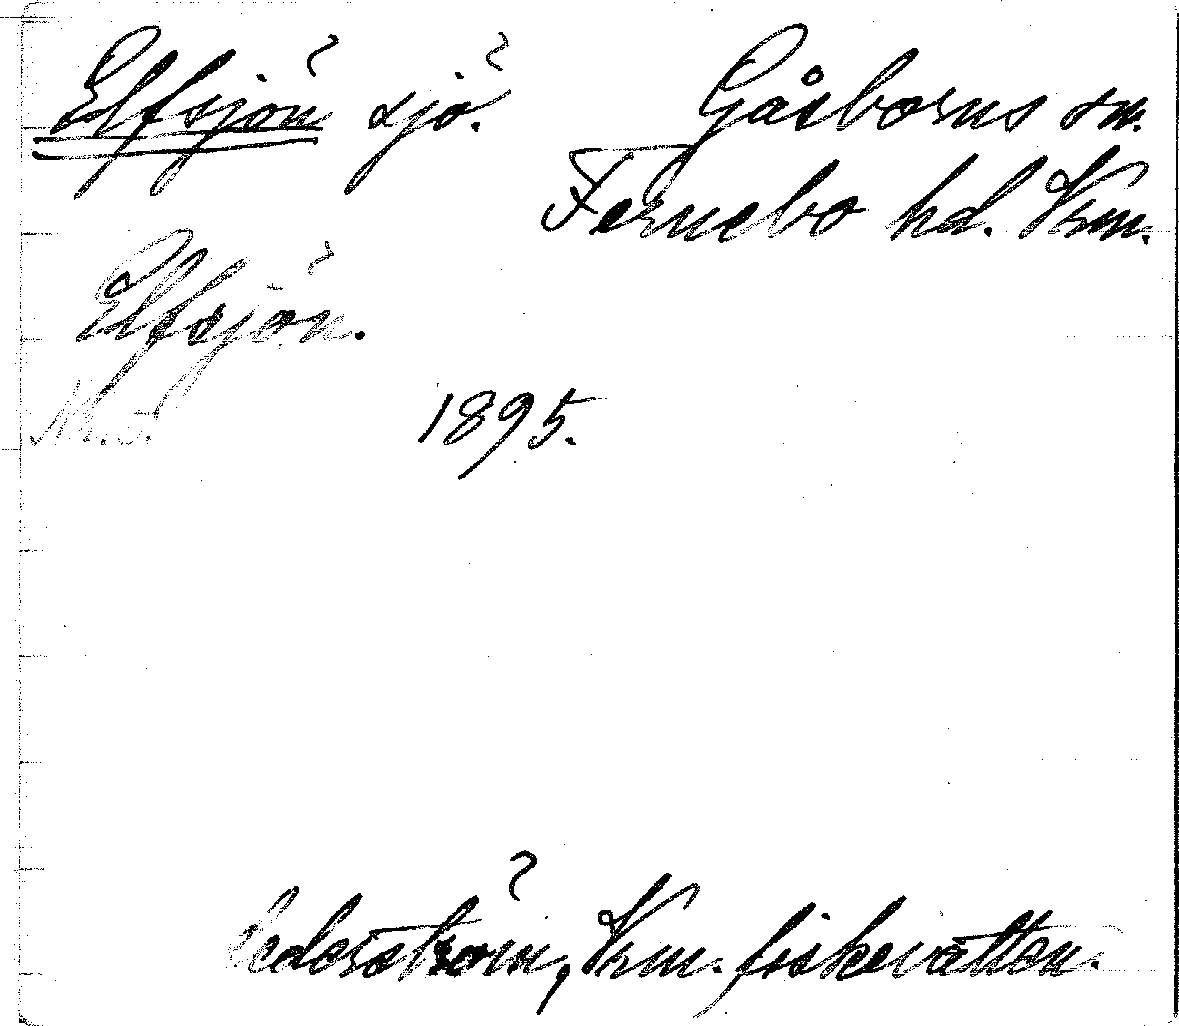 Elfsjön sjö. Gåsborns sn.
Fernebo hd. Vrm.
Elfsjön.
1895.
Cederström, Vrm. fiskevatten.